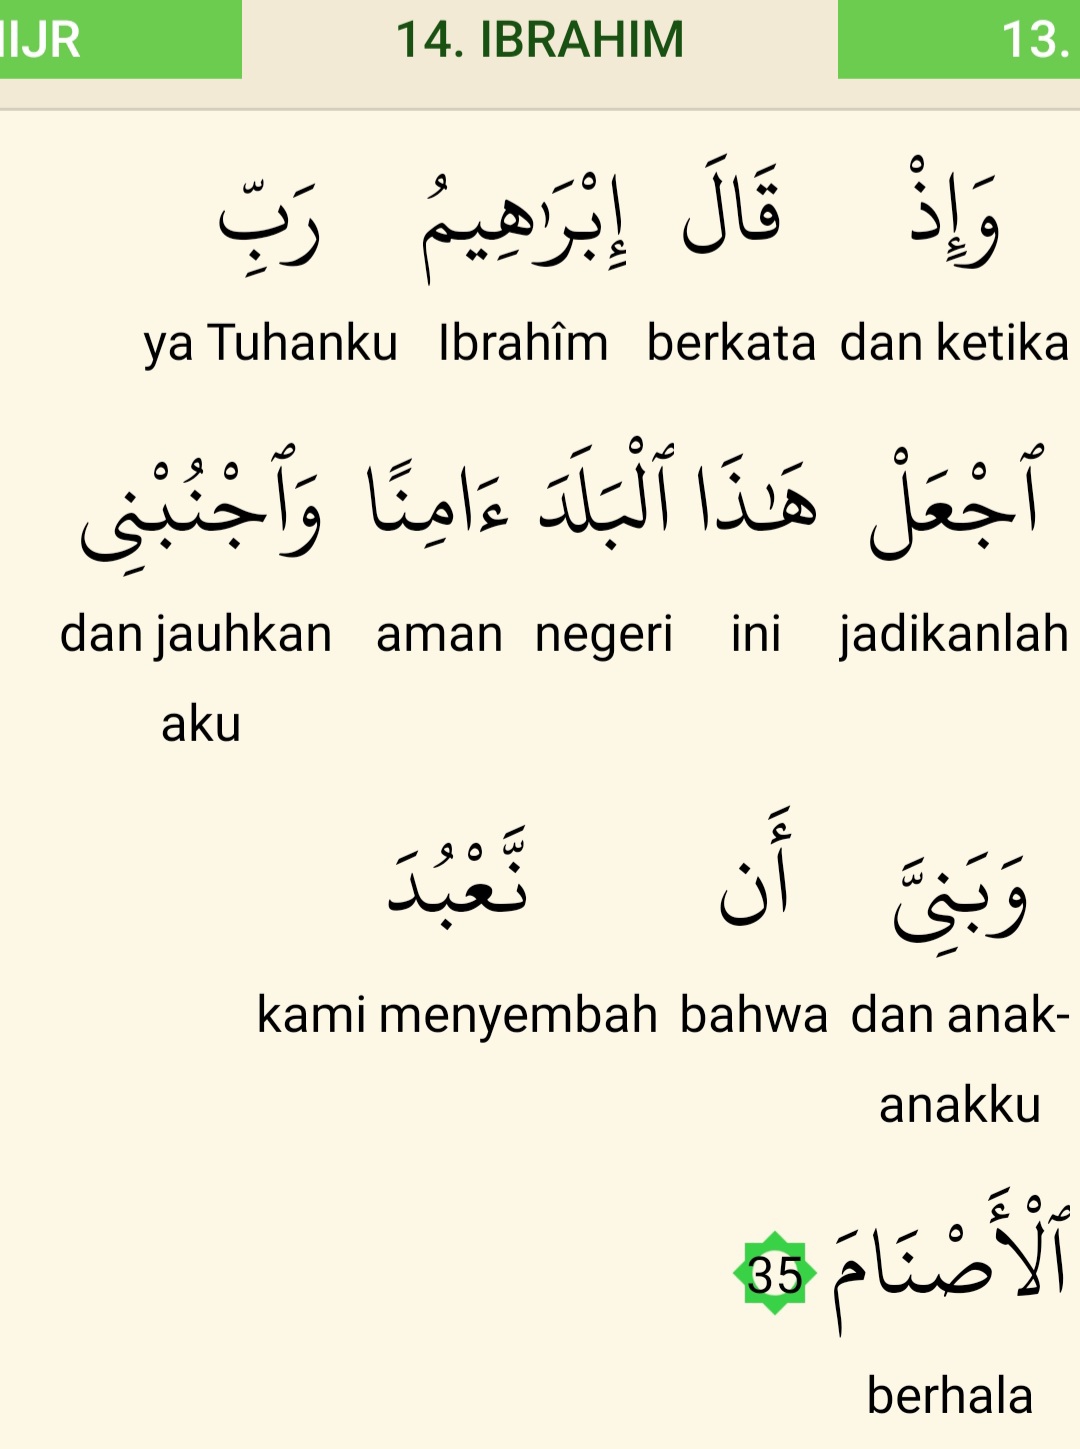 IIJR 14. IBRAHIM 13.
وَإِذْ قَالَ إِبْرَٰهِيمُ رَبِّ
ya Tuhanku Ibrahîm berkata dan ketika
ٱجْعَلْ هَـٰذَا ٱلْبَلَدَ ءَامِنًا وَٱجْنُبْنِى
dan jauhkan aman negeri ini jadikanlah
aku
وَبَنِىَّ أَن نَّعْبُدَ
kami menyembah bahwa dan anak-
anakku
ٱلْأَصْنَامَ 35
berhala